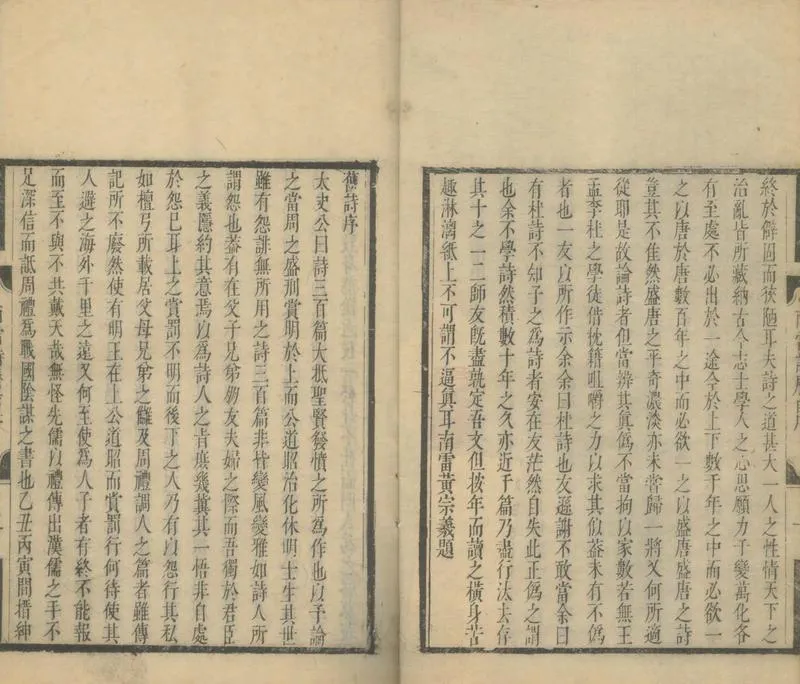 終於僻固而狹陋耳夫詩之道甚大一人之性情天下之
治亂皆所藏納古今志士學人之心思願力千變萬化各
有至處不必出於一途今於上下數千年之中而必欲一
之以唐於唐數百年之中而必欲一之以盛唐盛唐之詩
豈其不佳然盛唐之平奇濃淡亦未嘗歸一將又何所適
從耶是故論詩者但當辨其眞僞不當拘以家數若無王
孟李杜之學徒借枕籍咀嚼之力以求其似蓋未有不僞
者也一友以所作示余余曰杜詩也友遜謝不敢當余曰
有杜詩不知子之爲詩者安在友茫然自失此正僞之謂
也余不學詩然積數十年之久亦近千篇乃盡行汰去存
其十之一二師友旣盡孰定吾文但按年而讀之橫身苦
趣淋漓紙上不可謂不逼眞耳南雷黃宗羲題
舊詩序
太史公曰詩三百篇大抵聖賢發憤之所爲作也以予論
之當周之盛刑賞明於上而公道昭治化休明士生其世
雖有怨誹無所用之詩三百篇非皆變風變雅如詩人所
謂怨也葢有在父子兄弟朋友夫婦之際而吾獨於君臣
之義隱約其意焉以爲詩人之旨庶幾冀其一悟非自處
於怨已耳上之賞罰不明而後下之人乃有以怨行其私
如檀弓所載居父母兄弟之讎及周禮調人之篇者雖傳
記所不廢然使有明王在上公道昭而賞罰行何待使其
人避之海外千里之遠又何至使爲人子者有終不能報
而至不與不共戴天哉無怪先儒以禮傳出漢儒之手不
足深信而詆周禮爲戰國陰謀之書也乙丑丙寅間搢紳